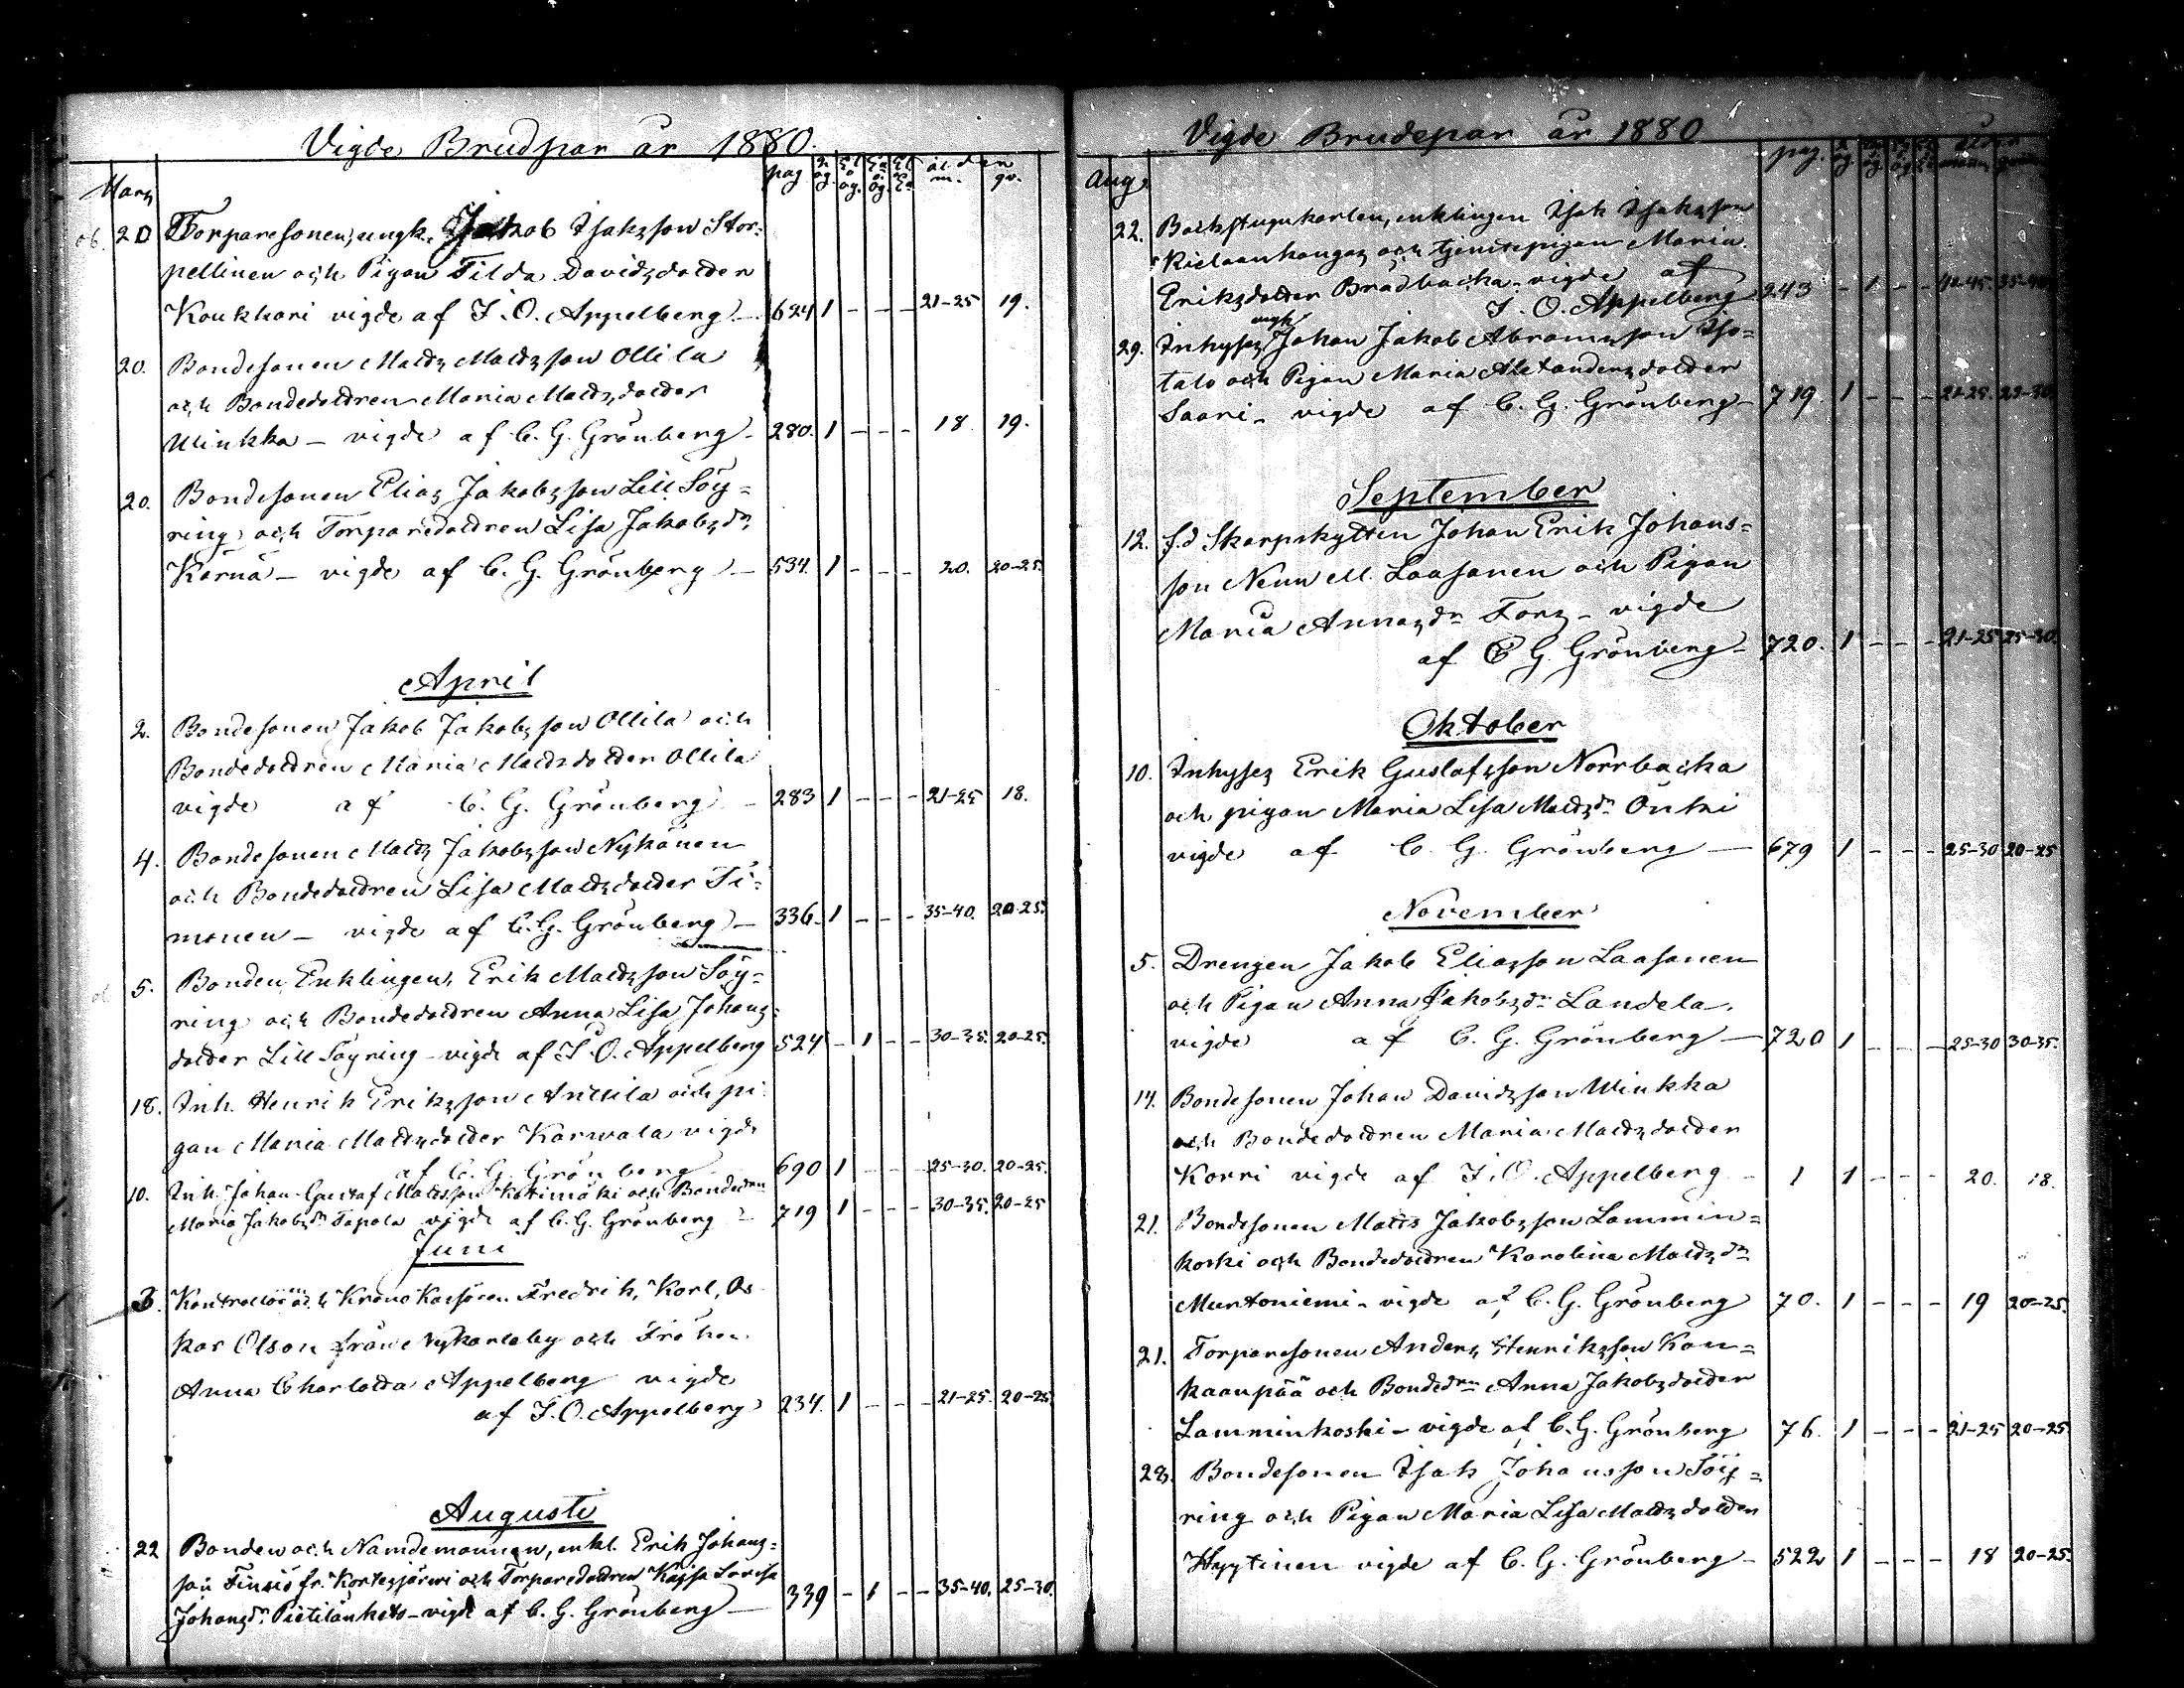 Vigde Brudpar år 1880.
Mars
pag. ålder
m. qv.
20 Torparesonen, ungk. Jakob Isaksson Stor-
pellinen och Pigan Tilda Davidsdotter
Koukkari vigde af J. O. Appelberg — 624 1 - - - 21-25 19.
20. Bondesonen Matts Mattsson Ollila
och Bondedottren Maria Mattsdotter
Winkka — vigde af C. G. Grönberg — 280. 1 - - - 18 19.
20. Bondesonen Elias Jakobsson Lill Söy=
ring och Torparedottren Lisa Jakobsdr
Kärnä — vigde af C. G. Grönberg — 534. 1 - - - 20. 20-25.
April
2. Bondesonen Jakob Jakobsson Ollila och
Bondedottren Maria Mattsdotter Ollila
vigde af C. G. Grönberg — 283 1 - - - 21-25 18.
4. Bondesonen Matts Jakobsson Nykänen
och Bondedottren Lisa Mattsdotter Ti-
monen — vigde af C. G. Grönberg — 336. 1 - - - 35-40. 20-25.
5. Bonden, Enklingen, Erik Mattsson Söy=
ring och Bondedottren Anna Lisa Johans=
dotter Lill Söyring — vigde af J. O. Appelberg 524 - 1 - - 30-35. 20-25.
18. Inh. Henrik Eriksson Anttila och pi-
gan Maria Mattsdotter Karwala vigde
af C. G. Grönberg 690 1 - - - 25-30. 20-25.
10. Inh. Johan Gustaf Mattsson Kotimäki och Bondedtrn
Maria Jakobsdr Tapola vigde af C. G. Grönberg — 719 1 - - - 30-35. 20-25
Juni
3. Kontrollör och Krono Kassören Fredrik, Karl, Os
kar Olson från Nykarleby och Fröken
Anna Charlotta Appelberg vigde
af J. O. Appelberg 234. 1 - - - 21-25. 20-25
Augusti
22 Bonden och Nämdemannen, enkl. Erik Johans=
son Finnis fr. Kortesjärwi och Torparedottren Kajsa Lovisa
Johansdr. Pietilänketo — vigde af C. G. Grönberg — 339 - 1 - - 35-40. 25-30.
Vigde Brudepar år 1880
Aug.
pag. ålder
22. Backstugukarlen, enklingen Isak Isaksson
Kielaankangas och tjenstepigan Maria
Eriksdotter Brådbacka — vigde af
J. O. Appelberg 243 - 1 - - 40-45. 35-40
ungk
29. Inhyses Johan Jakob Abramsson Iso-
talo och Pigan Maria Alexandersdotter
Saari — vigde af C. G. Grönberg — 719. 1 - - - 21-25. 25-30.
September
12. f.d Skarpskytten Johan Erik Johans=
son Nenn M. Laasanen och Pigan
Maria Annasdr Fors — vigde
af C G. Grönberg — 720. 1 - - - 21-25 25-30.
Oktober
10. Inhyses Erik Gustafsson Norrbacka
och pigan Maria Lisa Mattsdr Önkki
vigde af C. G. Grönberg — 679 1 - - - 25-30 20-25
November
5. Drengen Jakob Eliasson Laasanen
och Pigan Anna Jakobsdr Landela.
vigde af C. G. Grönberg — 720 1 - - - 25-30 30-35.
14. Bondesonen Johan Davidsson Winkka
och Bondedottren Maria Mattsdotter
Korri vigde af J. O. Appelberg — 1 1 - - - 20. 18.
21. Bondesonen Matts Jakobsson Lammin=
koski och Bondedottren Karolina Mattsdr
Murtoniemi — vigde af C. G. Grönberg 70. 1 - - - 19 20-25.
21. Torparesonen Anders Henriksson Kan=
kaanpää och Bondedtrn Anna Jakobsdotter
Lamminkoski — vigde af C. G. Grönberg 76. 1 - - - 21-25 20-25
28. Bondesonen Isak Johansson Söy=
ring och Pigan Maria Lisa Mattsdotter
Hyytinen vigde af C. G. Grönberg — 522 1 - - - 18 20-25.